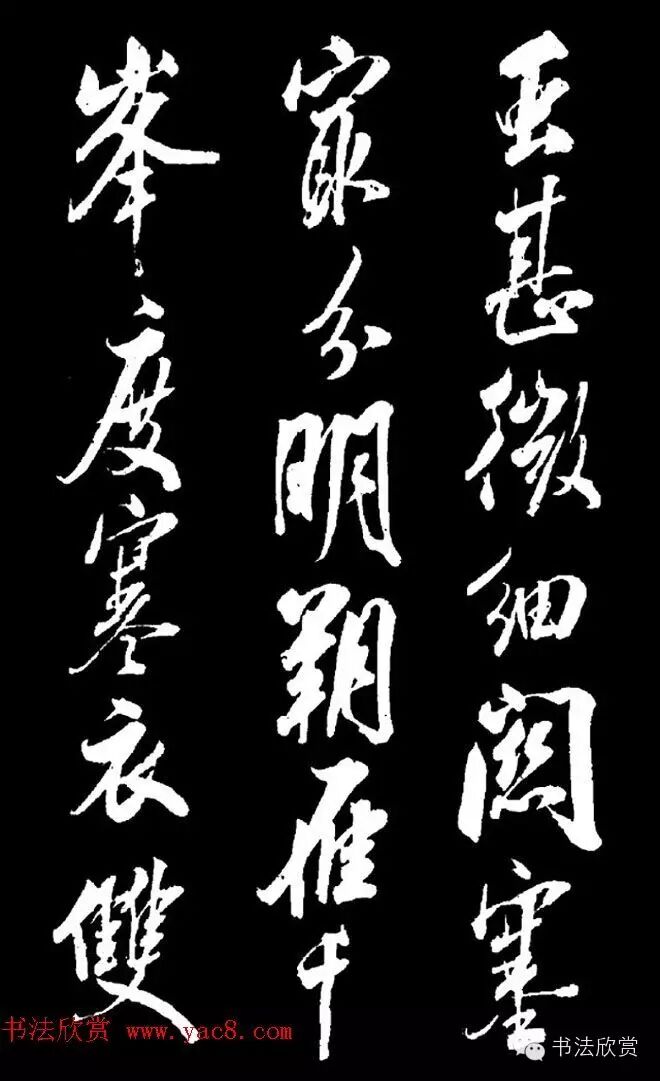 甚微細關塞
最分明朔雁千
峯度寒衣雙
书法欣赏 www.yac8.com
书法欣赏